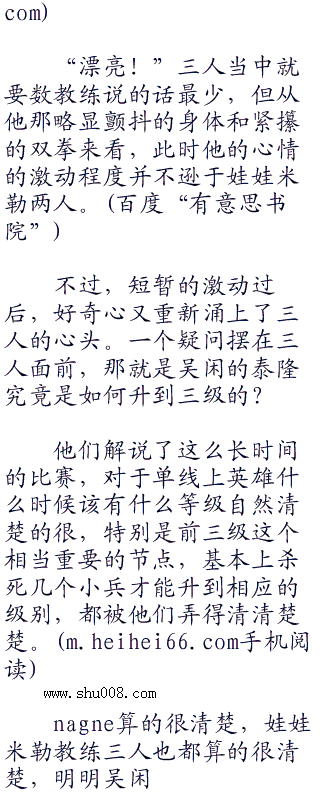 com)
“漂亮！”三人当中就
要数教练说的话最少，但从
他那略显颤抖的身体和紧攥
的双拳来看，此时他的心情
的激动程度并不逊于娃娃米
勒两人。(百度“有意思书
院”)
不过，短暂的激动过
后，好奇心又重新涌上了三
人的心头。一个疑问摆在三
人面前，那就是吴闲的泰隆
究竟是如何升到三级的？
他们解说了这么长时间
的比赛，对于单线上英雄什
么时候该有什么等级自然清
楚的很，特别是前三级这个
相当重要的节点，基本上杀
死几个小兵才能升到相应的
级别，都被他们弄得清清楚
楚。(m.heihei66.com手机阅
读)
www.shu008.com
nagne算的很清楚，娃娃
米勒教练三人也都算的很清
楚，明明吴闲